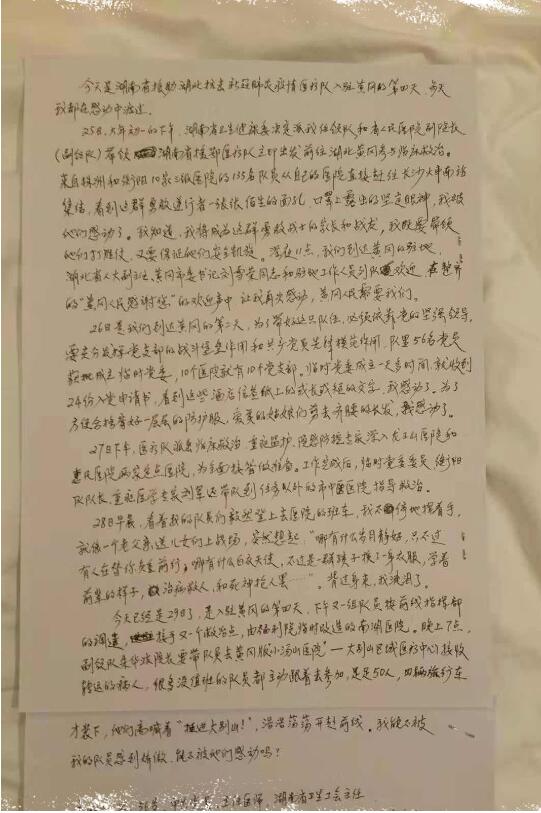 今天是湖南省援助湖北抗击新冠肺炎疫情医疗队入驻黄冈的第四天，每天
我都在感动中度过。
25日，大年初一的下午，湖南省卫生健康委决定派我任领队和省人民医院副院长
(副领队)带领湖南省援鄂医疗队立即出发前往湖北黄冈参与临床救治。
来自株洲和衡阳10家三级医院的135名队员从自己的医院直接赶往长沙火车南站
集结，看到这群勇敢逆行者一张张陌生的面孔，口罩上露出的坚定眼神，我被
他们感动了。我知道，我将成为这群勇敢战士的家长和战友，我既要带领
他们打胜仗，又要保证他们安全凯旋。深夜11点，我们到达黄冈的驻地，
湖北省人大副主任、黄冈市委书记刘雪荣同志和驻地工作人员列队欢迎，在整齐
的“黄冈人民感谢您”的欢迎声中，让我再次感动，黄冈人民需要我们。
26日是我们到达黄冈的第二天，为了带好这只队伍，必须依靠党的坚强领导，
要充分发挥党支部的战斗堡垒作用和共产党员先锋模范作用，队里56名党员
成立临时党委，10个医院就有10个党支部。临时党委成立一天多时间，就收到
24份入党申请书，看到这些酒店信笺纸上的或长或短的文字，我感动了。为了
方便会穿着好一层层的防护服，爱美的姑娘们剪去齐腰的长发，我感动了。
27日下午，医疗队派出临床救治、重症监护、院感防控专家深入龙王山医院和
惠民医院两家定点医院，为全面接管做准备。工作完成后，临时党委委员、衡阳
队队长、重症医学专家刘军还带队到任务以外的市中医医院指导救治。
28日早晨，看着我的队员们毅然登上去医院的班车，我不停地挥着手，
就像一个老父亲送儿女们上战场，突然想起，“哪有什么岁月静好，只不过
有人在替你负重前行；哪有什么白衣天使，不过是一群孩子换了一身衣服，学着
前辈的样子，治病救人，和死神抢人罢……”。背过身来，我流泪了。
今天已经是29日了，是入驻黄冈的第四天，下午又一组队员按前线指挥部
的调遣，接手又一个救治点，由福利院临时改造的南湖医院。晚上7点，
副领队祝华波院长要带队员去黄冈版小汤山医院——大别山区域医疗中心接收
转运的病人，很多没值班的队员都主动跟着去参加，足足50人，四辆旅行车
才装下，他们高喊着“挺进大别山！”，浩浩荡荡开赴前线。我能不被
我的队员感到骄傲，能不被他们感动吗？
主任医师，湖南省卫生工会主任